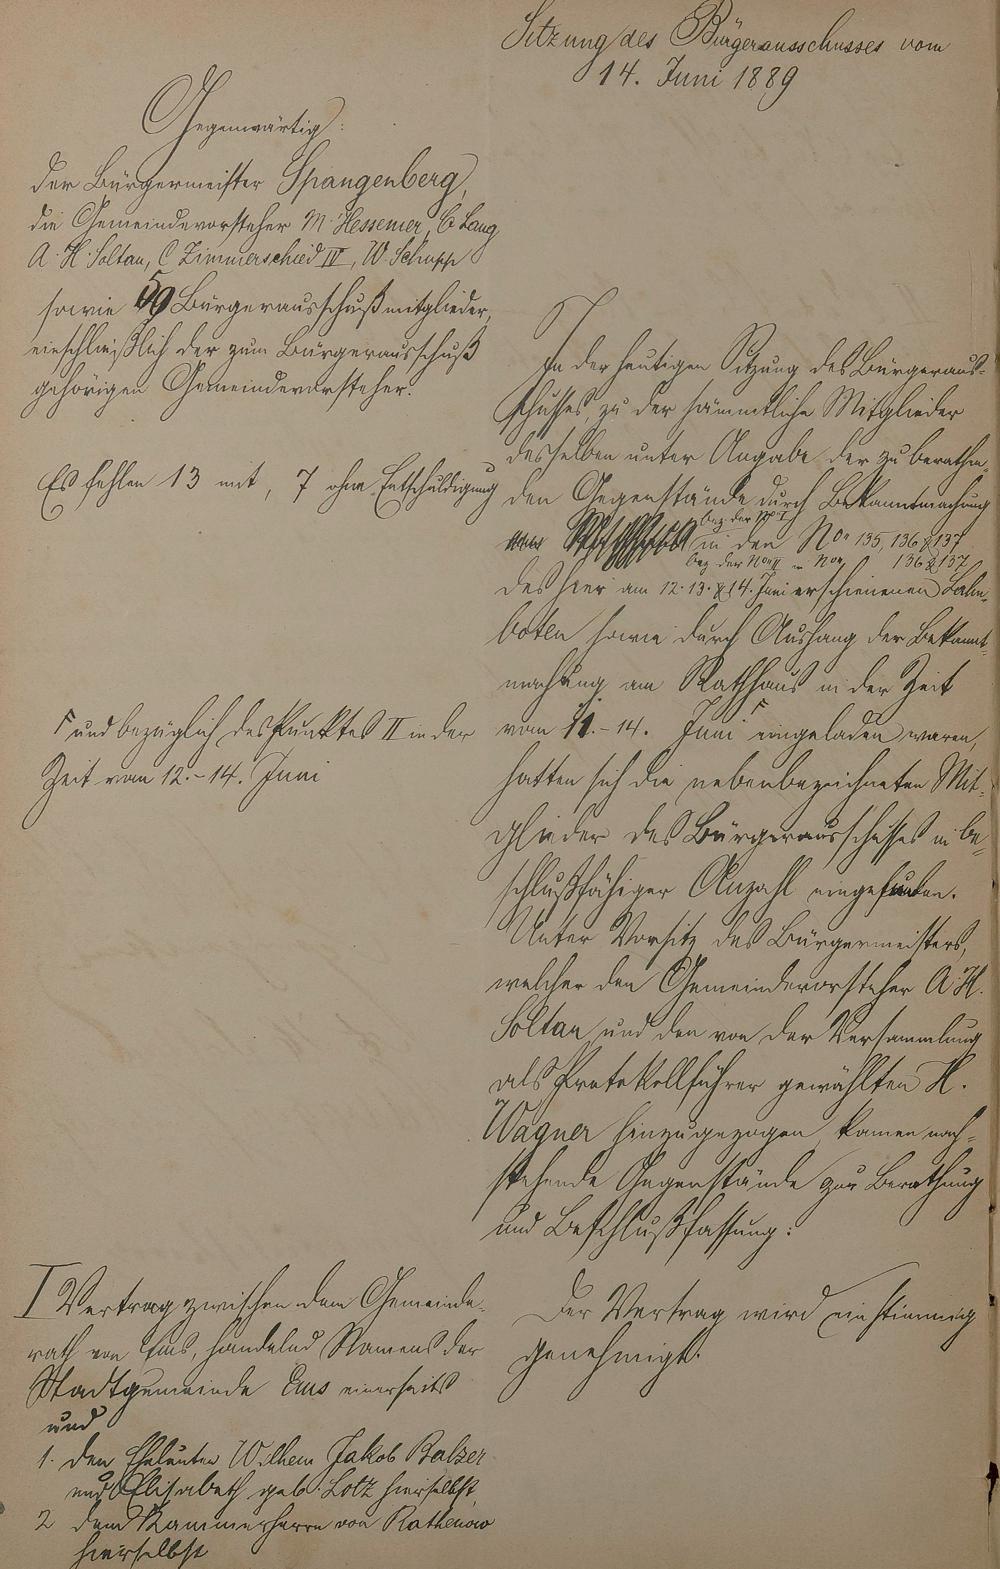 Sitzung des Bürgerausschusses vom
14. Juni 1889
Gegenwärtig:
der Bürgermeister Spangenberg,
die Gemeindevorsteher M. Hessemer, C. Lang
A. H. Soltau, C Zimmerschied IV, W. Schupp
sowie 59 Bürgerausschußmitglieder,
einschließlich der zum Bürgerausschuß
gehörigen Gemeindevorsteher.
Es fehlen 13 mit, 7 ohne Entschuldigung
In der heutigen Sitzung des Bürgeraus-
schusses, zu der sämmtliche Mitglieder
desselben unter Angabe der zu berathen-
den Gegenstände durch Bekanntmachung
bez. der No I
in den Non 135, 136 & 137
bez. der No II in Non 136 & 137
des hier am 12. 13. & 14. Juni erschienenen Lahn-
boten sowie durch Aushang der Bekannt-
machung am Rathhaus in der Zeit
vom 11.-14. Juni eingeladen waren,
hatten sich die nebenbezeichneten Mit-
glieder des Bürgerausschusses in be-
schlußfähiger Anzahl eingefunden.
Unter Vorsitz des Bürgermeisters,
welcher den Gemeindevorsteher A. H.
Soltau und den von der Versammlung
als Protokollführer gewählten H.
Wagner hinzugezogen, kamen nach-
stehende Gegenstände zur Berathung
und Beschlußfassung:
und bezüglich des Punktes II in der
Zeit vom 12.-14. Juni
I Vertrag zwischen dem Gemeinde-
rath von Ems, handelnd Namens der
Stadtgemeinde Ems einerseits
und
1. den Eheleuten Wilhelm Jakob Balzer
und Elisabeth geb. Lotz hierselbst,
2 dem Kammerherrn von Rathenow
hierselbst
Der Vertrag wird einstimmig
genehmigt.